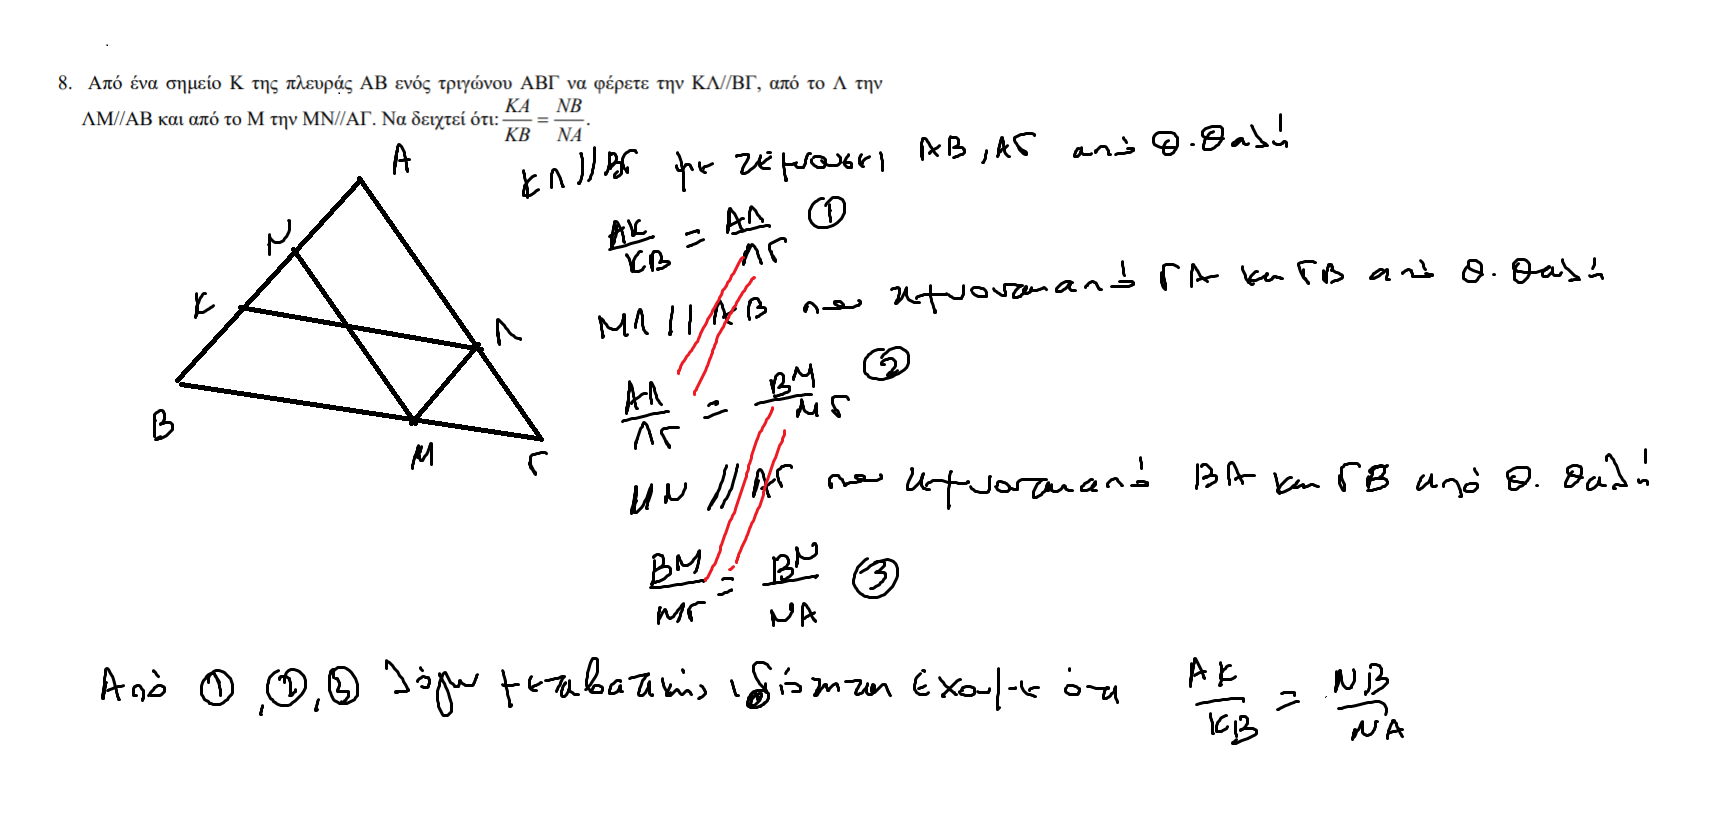 8. Από ένα σημείο Κ της πλευράς ΑΒ ενός τριγώνου ΑΒΓ να φέρετε την ΚΛ//ΒΓ, από το Λ την
ΛΜ//ΑΒ και από το Μ την ΜΝ//ΑΓ. Να δειχτεί ότι: ΚΑ/ΚΒ = ΝΒ/ΝΑ.
Α
Ν
Κ
Λ
Β
Μ
Γ
ΚΛ//ΒΓ με τέμνουσες ΑΒ, ΑΓ από Θ. Θαλή
ΑΚ/ΚΒ = ΑΛ/ΛΓ ①
ΜΛ//ΑΒ που τέμνονται από ΓΑ και ΓΒ από Θ. Θαλή
ΑΛ/ΛΓ = ΒΜ/ΜΓ ②
ΜΝ//ΑΓ που τέμνονται από ΒΑ και ΓΒ από Θ. Θαλή
ΒΜ/ΜΓ = ΒΝ/ΝΑ ③
Από ①, ②, ③ λόγω μεταβατικής ιδιότητας έχουμε ότι ΑΚ/ΚΒ = ΝΒ/ΝΑ